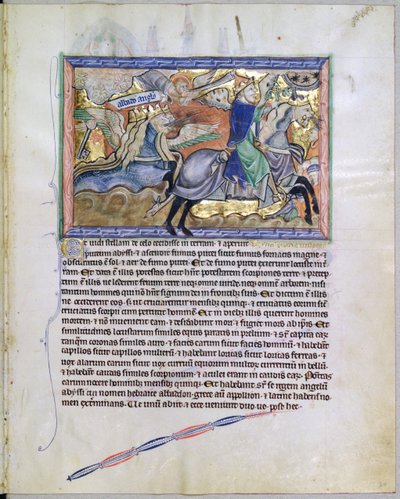 abaddo angls
Et vidi stellam de celo cecidisse in terram & aperuit
puteum abyssi. & ascendit fumus putei sicut fumus fornacis magne. &
obscuratus ē sol. & aer de fumo putei. Et de fumo putei exierunt locuste in ter
ram. Et data ē illis potestas sicut hnt potestatem scorpiones terre. & precep
tum ē illis ne lederent fenum terre neq; omne viride. neq; omnem arborem. nisi
tantum homines qui nō hnt signum dei in frontib; suis. Et dictum ē illis
ne occiderent eos. sed ut cruciarentur mensibus quinq;. & cruciatus eorum sicut
cruciatus scorpii cum percutit hominem. Et in dieb; illis querent homines
mortem. & nō invenient eam. & desiderabunt mori. & fugiet mors ab ipsis. Et
similitudines locustarum similes equis paratis in prelium. & super capita earum
tanquam corones similes auro. & facies earum sicut facies hominum. & habebant
capillos sicut capillos mulierum. & habebant loricas sicut loricas ferreas. &
vox alarum earum sicut vox curruum equorum multorum currentium in bellum.
& habebant caudas similes scorpionum. & aculei erant in caudis earum. Potestas
earum nocere hominib; mensibus quinq;. Et habebant super se regem angelum
abyssi. cui nomen hebraice abbaddon. grece autem appollion. & latine habens no
men exterminans. Ve unum abiit. & ecce veniunt duo ve post hec.